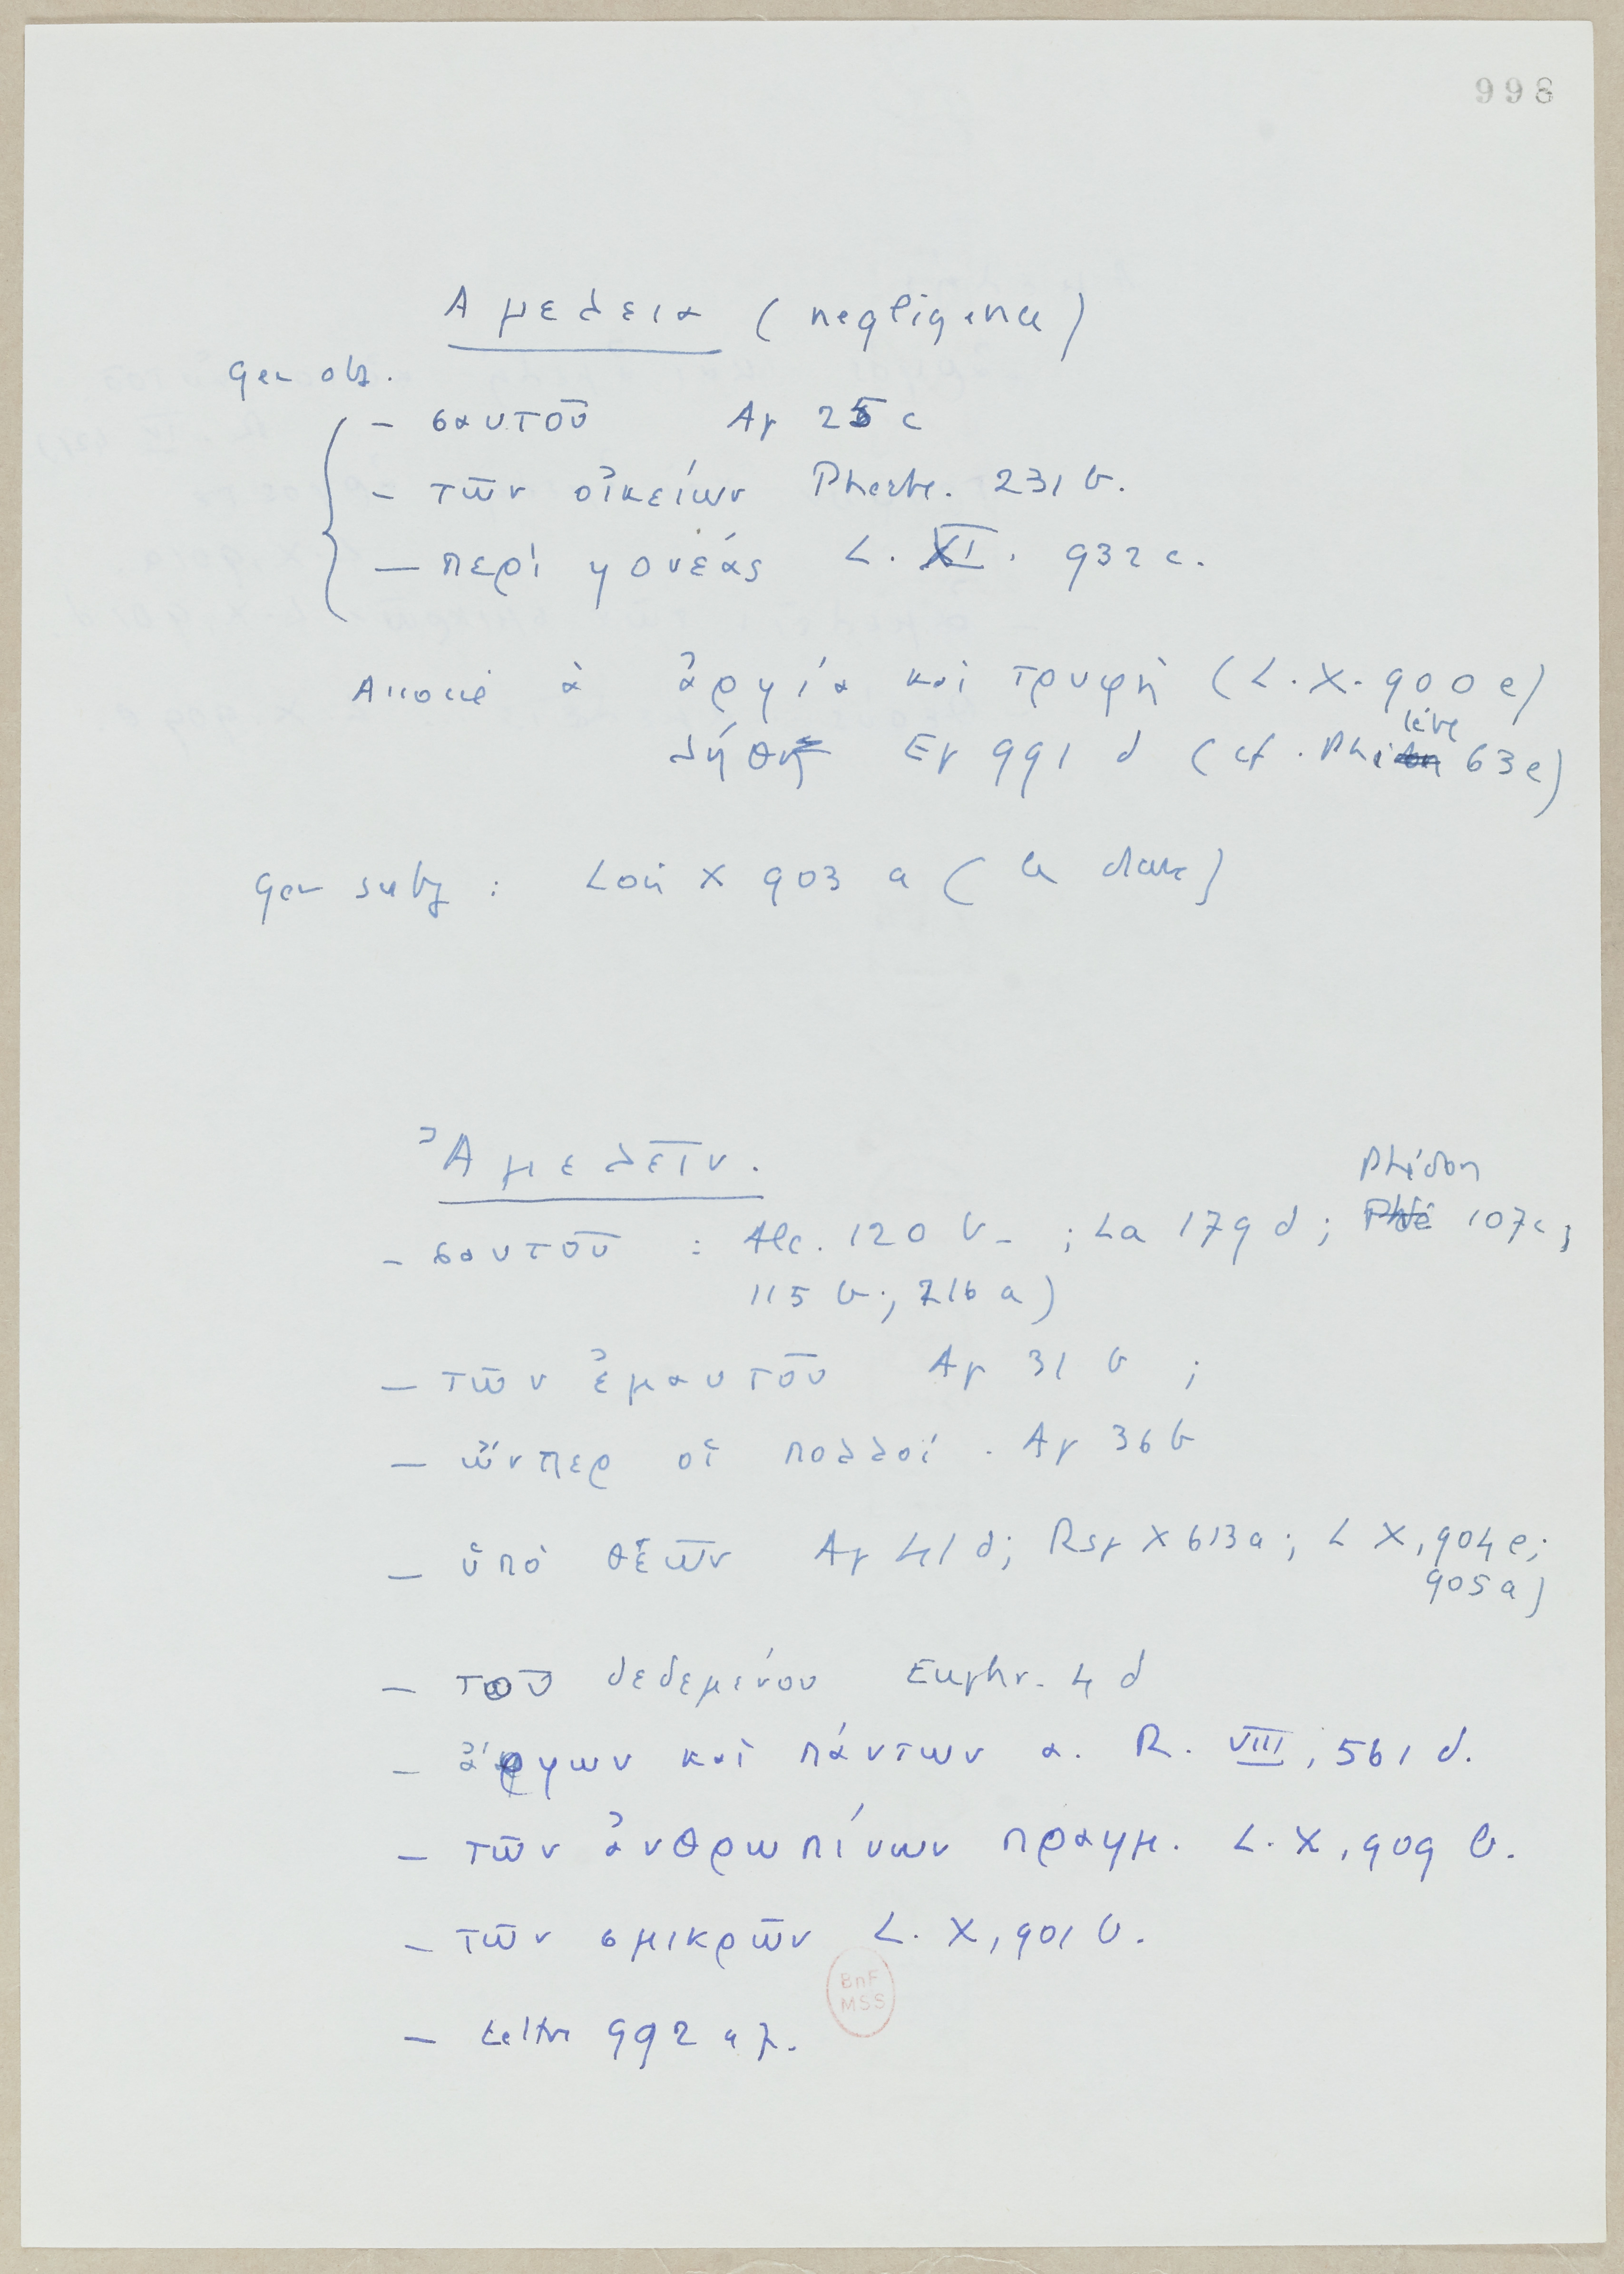 998
Αμελεια (negligence)
Gen obj.
- σαυτοῦ Ap 25 c
- τῶν οἰκείων Phèdre. 231 b.
- περὶ γονέας L. XI. 932 c.
Associé à ἀργία καὶ τρυφὴ (L. X. 900 e)
λήθη Ep 991 d (cf. Philèbe 63 e)
Gen subj : Lois X 903 a (
Ἀμελεῖν.
- σαυτοῦ : Alc. 120 b - ; La 179 d ; Phédon 107 c ;
115 b ; 216 a)
- τῶν ἐμαυτοῦ Ap 31 b ;
- ὧνπερ οἱ πολλοί . Ap 36 b
- ὑπὸ θεῶν Ap 41 d ; Rep X 613 a ; L X, 904 e ;
905 a)
- τοῦ δεδεμένου Euphr. 4 d
- ἄργων καὶ πάντων α. R. VIII, 561 d.
- τῶν ἀνθρωπίνων πραγμ. L. X, 909 b.
- τῶν σμικρῶν L. X, 901 b.
BnF
MSS
- Lettre 992 a